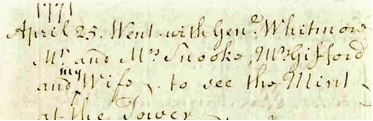 1771
April 25. Went with Genl. Whitmore
Mr. and Mrs. Snooke, Mr. Gifford
and my Wife, to see the Mint
at the Tower